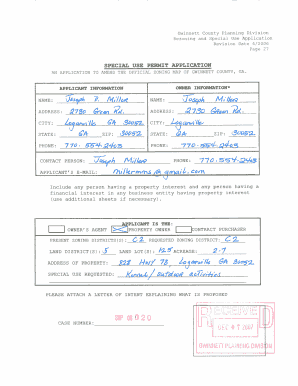 Gwinnett County Planning Division
Rezoning and Special Use Application
Revision Date 4/2005
Page 27
SPECIAL USE PERMIT APPLICATION
AN APPLICATION TO AMEND THE OFFICIAL ZONING MAP OF GWINNETT COUNTY, GA.
APPLICANT INFORMATION OWNER INFORMATION*
NAME: Joseph P. Miller NAME: Joseph Miller
ADDRESS: 2730 Green Rd. ADDRESS: 2730 Green Rd.
CITY: Loganville GA 30052 CITY: Loganville
STATE: GA ZIP: 30052 STATE: GA ZIP: 30052
PHONE: 770-554-2463 PHONE: 770-554-2463
CONTACT PERSON: Joseph Miller PHONE: 770-554-2463
APPLICANT'S E-MAIL: millermms@gmail.com
Include any person having a property interest and any person having a
financial interest in any business entity having property interest
(use additional sheets if necessary).
APPLICANT IS THE:
OWNER'S AGENT X PROPERTY OWNER CONTRACT PURCHASER
PRESENT ZONING DISTRICT(S): C2 REQUESTED ZONING DISTRICT: C2
LAND DISTRICT(S): 5 LAND LOT(S): 125 ACREAGE: 2.7
ADDRESS OF PROPERTY: 828 HWY 78, Loganville GA 30052
SPECIAL USE REQUESTED: Kennel/outdoor activities
PLEASE ATTACH A LETTER OF INTENT EXPLAINING WHAT IS PROPOSED
CASE NUMBER: SUP 020
RECEIVED
DEC
GWINNETT PLANNING DIVISION